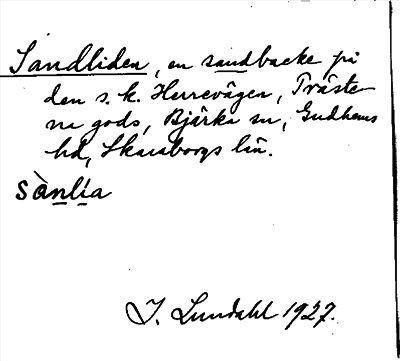 Sandliden, en sandbacke på
den s. k. Herrevägen, Träste-
na gods, Bjärka sn, Gudhems
hd, Skaraborgs län.
sànlía
I. Lundahl 1927.